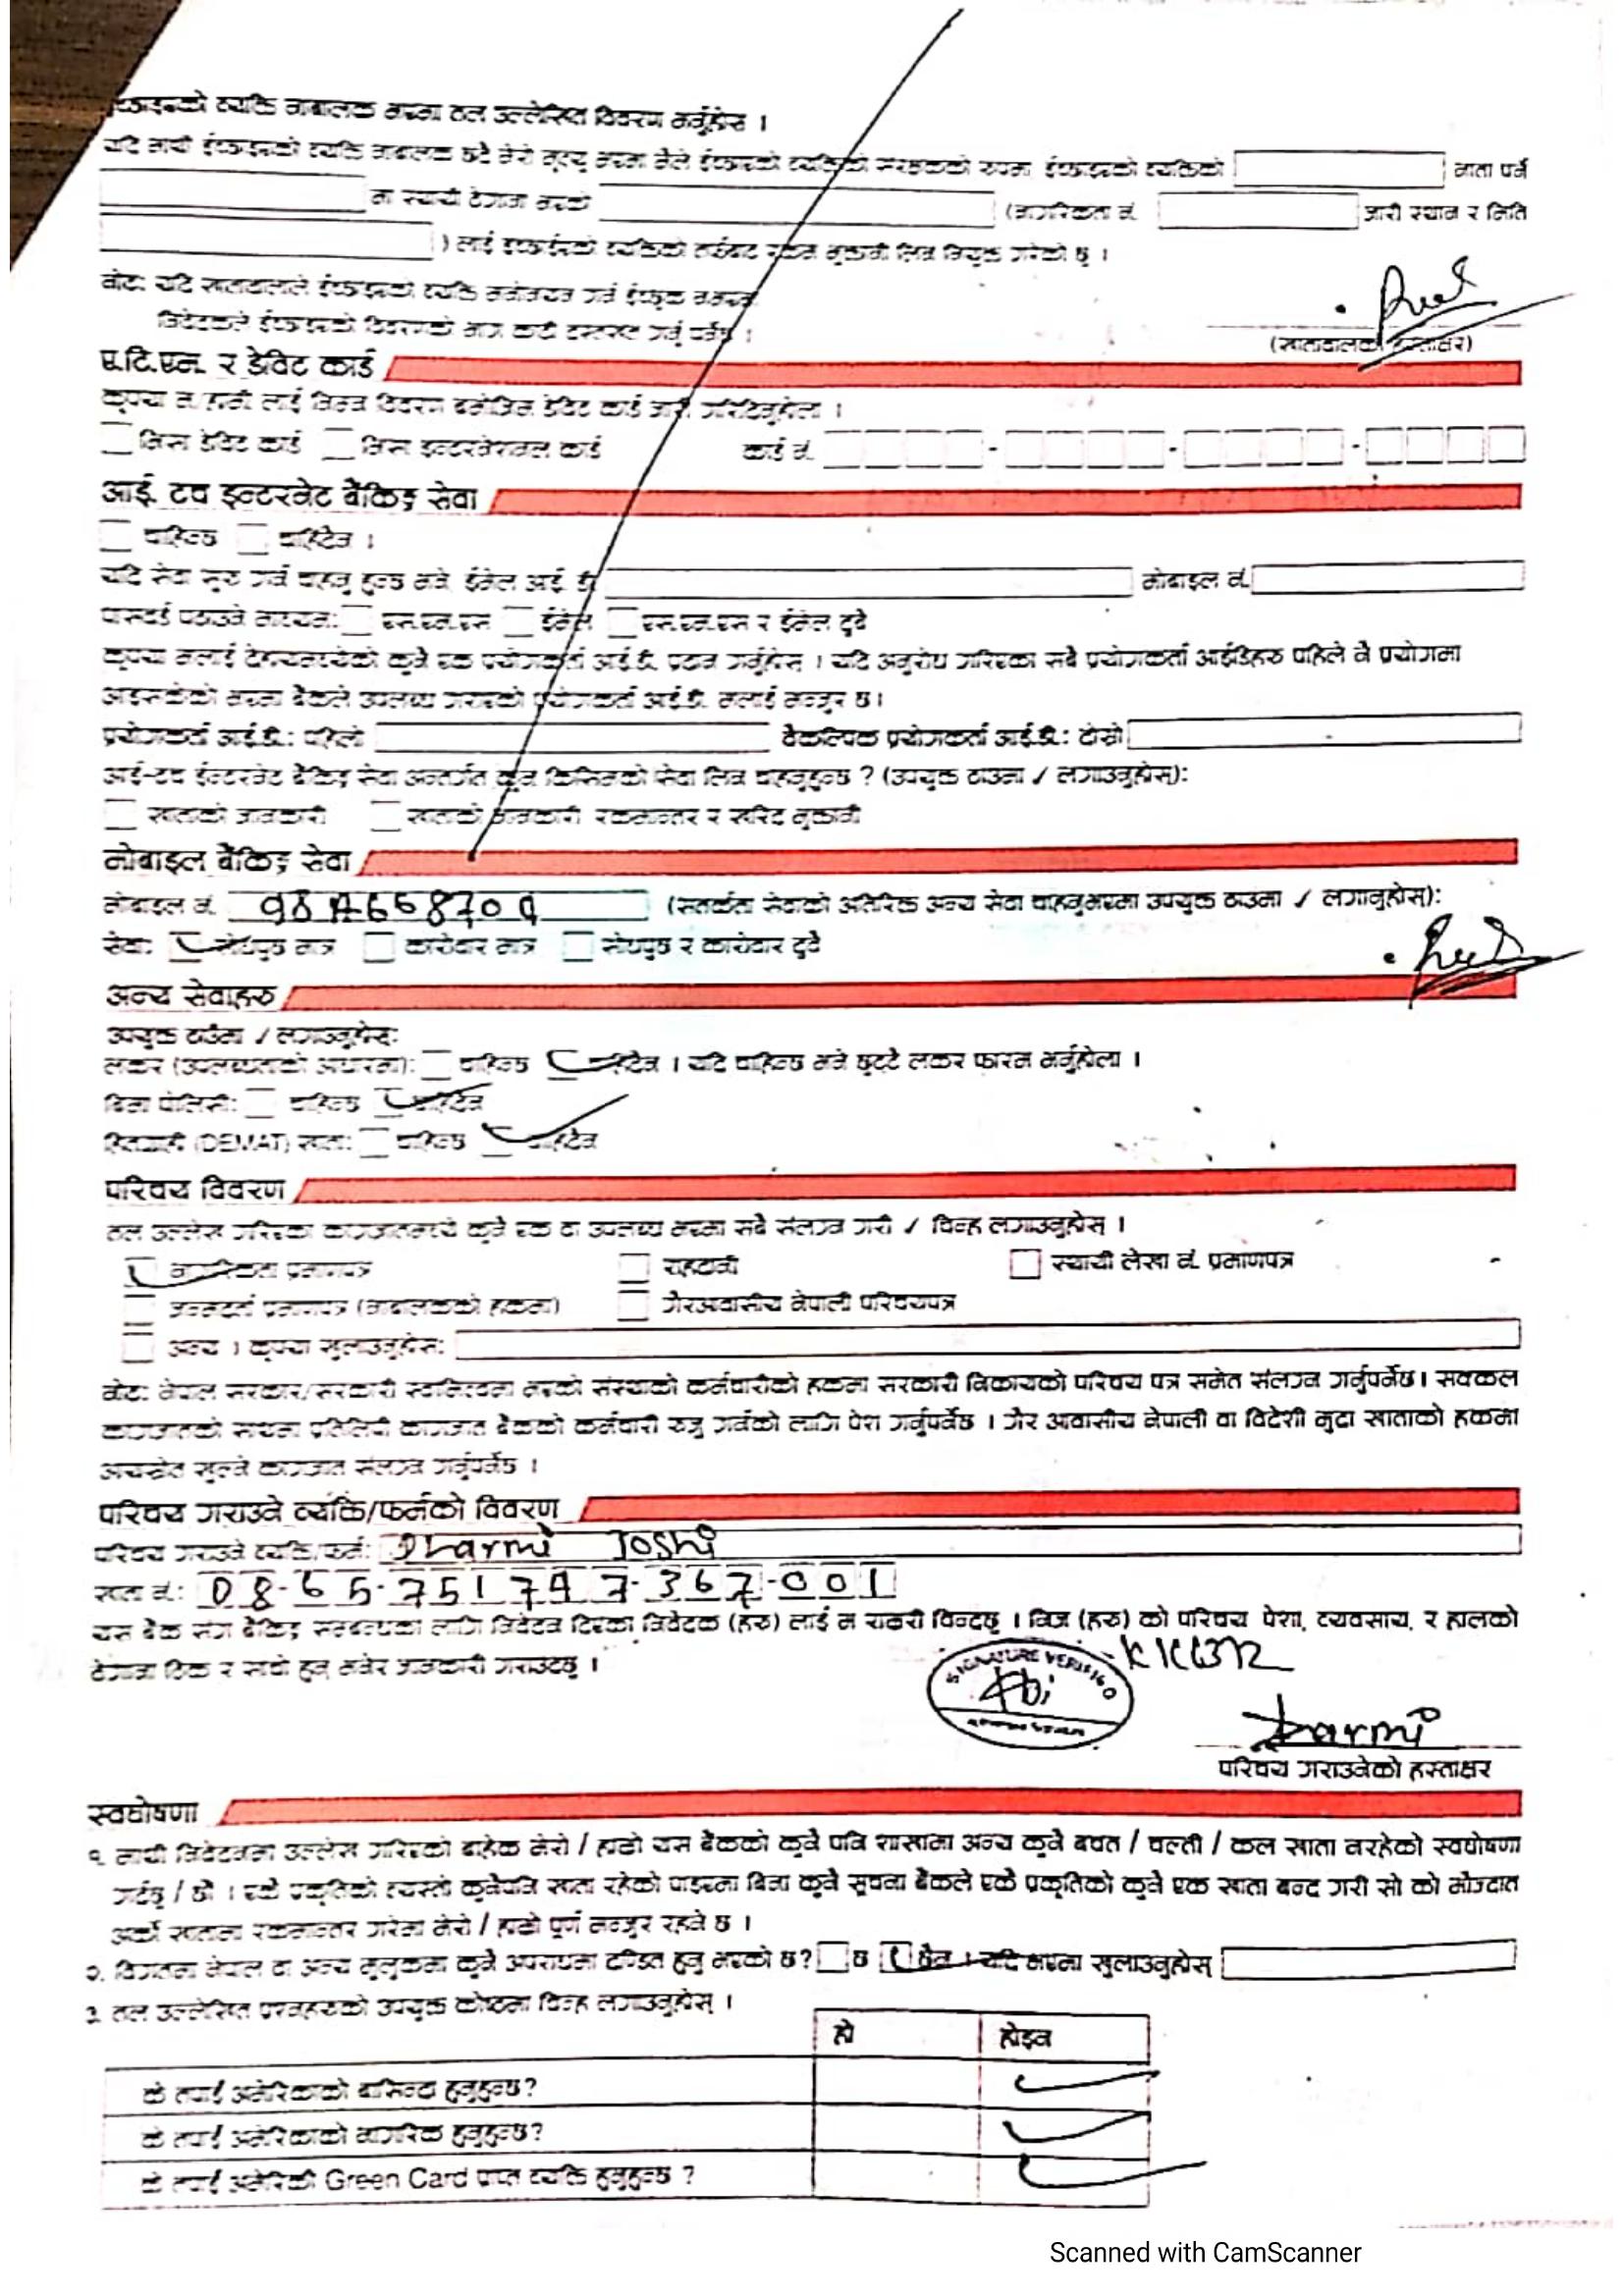 इच्छाइएको व्यक्ति नाबालक भएमा तल उल्लेखित विवरण भर्नुहोस ।
यदि माथी ईच्छाइएको व्यक्ति नाबालक छदै मेरो मृत्यु भएमा मैले ईच्छाएको व्यक्तिको संरक्षकको रुपमा ईच्छाइएको व्यक्तिको नाता पर्ने
मा स्थायी ठेगाना भएको (नागरिकता नं. जारी स्थान र मिति
) लाई इच्छाईएको व्यक्तिको तर्फबाट रकम भुक्तानी लिन नियुक्त गरेको छु ।
नोट: यदि खातावालाले ईच्छाइएको व्यक्ति मनोनयन गर्न ईच्छुक नभएमा
निवेदकले ईच्छाइएको विवरणको भाग काटी दस्तखत गर्नु पर्नेछ ।
(खातावालाको हस्ताक्षर)
ए.टि.एम. र डेविट कार्ड
कृपया म/हामी लाई निम्न विवरण बमोजिम डेविट कार्ड जारी गरिदिनुहोला ।
भिसा डेविट कार्ड भिसा इन्टरनेशनल कार्ड कार्ड नं.
आई. टच इन्टरनेट बैंकिङ्ग सेवा
चाहिन्छ चाहिदैन ।
यदि सेवा सुरु गर्न चाहनु हुन्छ भने, ईमेल आई. डी. मोबाइल नं.
पासवर्ड पठाउने माध्यम: एस.एम.एस ईमेल एस.एम.एस र ईमेल दुवै
कृपया मलाई देहायमध्येको कुनै एक प्रयोगकर्ता आई.डी. प्रदान गर्नुहोस् । यदि अनुरोध गरिएका सबै प्रयोगकर्ता आईडिहरु पहिले नै प्रयोगमा
आइसकेको भएमा बैंकले उपलब्ध गराएको प्रयोगकर्ता आई.डी. मलाई मन्जुर छ।
प्रयोगकर्ता आई.डी.: पहिलो वैकल्पिक प्रयोगकर्ता आई.डी.: दोस्रो
आई-टच ईन्टरनेट बैंकिङ्ग सेवा अन्तर्गत कुन किसिमको सेवा लिन चाहनुहुन्छ ? (उपयुक्त ठाउमा / लगाउनुहोस्):
खाताको जानकारी खाताको जानकारी रकमान्तर र खरिद भुक्तानी
मोबाइल बैंकिङ्ग सेवा
मोबाइल नं. (सतर्कता सेवाको अतिरिक्त अन्य सेवा चाहनुभएमा उपयुक्त ठाउमा / लगानुहोस्):
सेवा: सोधपुछ मात्र कारोवार मात्र सोधपुछ र कारोवार दुवै
अन्य सेवाहरु
उपयुक्त ठाउँमा / लगाउनुहोस्:
लकर (उपलब्धताको आधारमा): चाहिन्छ चाहिदैन । यदि चाहिन्छ भने छुट्टै लकर फारम भर्नुहोला ।
बिमा पोलिसी: चाहिन्छ चाहिदैन
हितग्राही (DEMAT) खाता: चाहिन्छ चाहिदैन
परिचय विवरण
तल उल्लेख गरिएका कागजातमध्ये कुनै एक वा उपलब्ध भएमा सबै संलग्न गरी / चिन्ह लगाउनुहोस् ।
नागरिकता प्रमाणपत्र राहदानी स्थायी लेखा नं. प्रमाणपत्र
जन्मदर्ता प्रमाणपत्र (नाबालकको हकमा) गैरआवासीय नेपाली परिचयपत्र
अन्य । कृपया खुलाउनुहोस:
नोट: नेपाल सरकार/सरकारी स्वामित्वमा भएको संस्थाको कर्मचारीको हकमा सरकारी निकायको परिचय पत्र समेत संलग्न गर्नुपर्नेछ। सक्कल
कागजातको साथमा प्रतिलिपी कागजात बैंकको कर्मचारी रुजु गर्नको लागि पेश गर्नुपर्नेछ । गैर आवासीय नेपाली वा विदेशी मुद्रा खाताको हकमा
आयस्रोत खुल्ने कागजात संलग्न गर्नुपर्नेछ ।
परिचय गराउने व्यक्ति/फर्मको विवरण
परिचय गराउने व्यक्ति/फर्म: Dharmi Joshi
खाता नं.: 08-65-751747-367-001
यस बैंक संग बैंकिङ्ग सम्बन्धका लागि निवेदन दिएका निवेदक (हरु) लाई म राम्ररी चिन्दछु । निज (हरु) को परिचय पेशा, व्यवसाय, र हालको
ठेगाना ठिक र साचो हुन् भनेर जानकारी गराउदछु ।
SIGNATURE VERIFIED
Dharmi
परिचय गराउनेको हस्ताक्षर
स्वघोषणा
१. माथी निवेदनमा उल्लेख गरिएको बाहेक मेरो / हाम्रो यस बैंकको कुनै पनि शाखामा अन्य कुनै बचत / चल्ती / कल खाता नरहेको स्वघोषणा
गर्दछु / छौं । एकै प्रकृतिको त्यस्तो कुनैपनि खाता रहेको पाइएमा बिना कुनै सूचना बैंकले एकै प्रकृतिको कुनै एक खाता बन्द गरी सो को मौज्दात
अर्को खातामा रकमान्तर गरेमा मेरो / हाम्रो पूर्ण मन्जुर रहने छ ।
२. विगतमा नेपाल वा अन्य मुलुकमा कुनै अपराधमा दण्डित हुनु भएको छ? छ छैन । यदि भएमा खुलाउनुहोस्
३. तल उल्लेखित प्रश्नहरुको उपयुक्त कोष्ठमा चिन्ह लगाउनुहोस् ।
हो होइन
के तपाई अमेरिकाको बासिन्दा हुनुहुन्छ?
के तपाई अमेरिकाको नागरिक हुनुहुन्छ?
के तपाई अमेरिकी Green Card प्राप्त व्यक्ति हुनुहुन्छ ?
Scanned with CamScanner